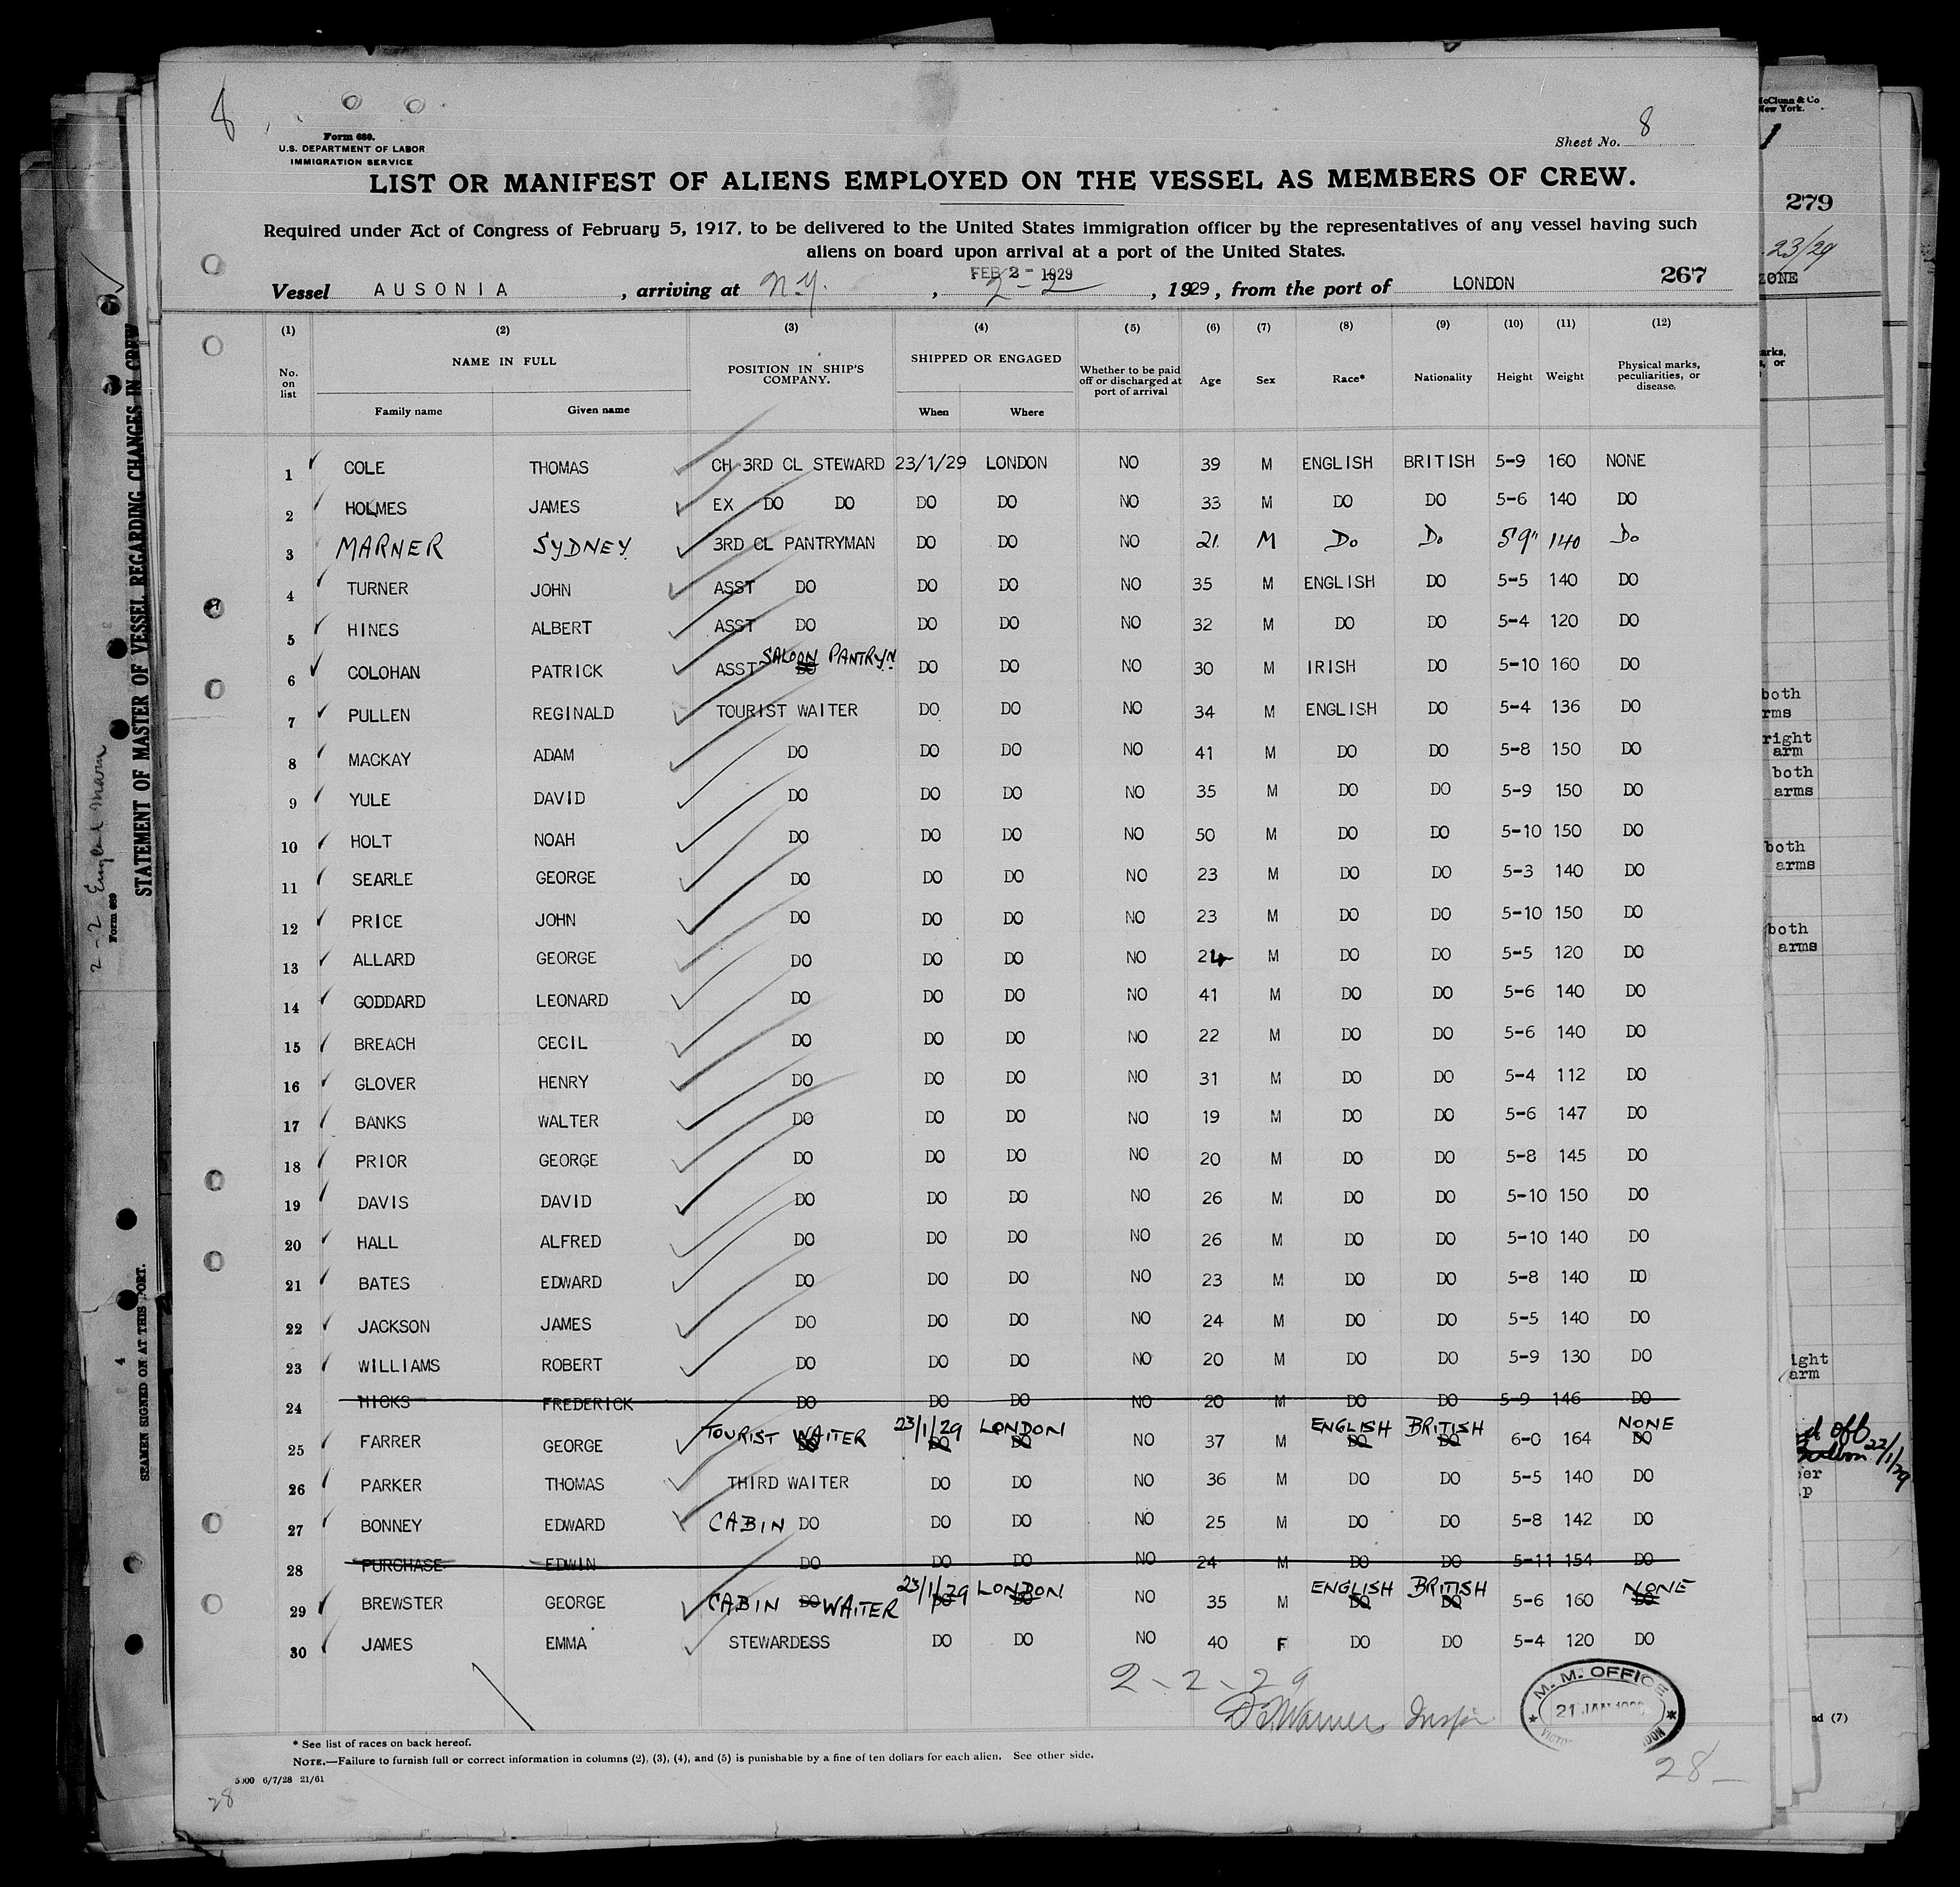 8
Form 689.
U.S. DEPARTMENT OF LABOR
IMMIGRATION SERVICE
Sheet No. 8
LIST OR MANIFEST OF ALIENS EMPLOYED ON THE VESSEL AS MEMBERS OF CREW.
Required under Act of Congress of February 5, 1917, to be delivered to the United States immigration officer by the representatives of any vessel having such
aliens on board upon arrival at a port of the United States.
FEB 2 - 1929
Vessel AUSONIA, arriving at N.Y., 2-2, 1929, from the port of LONDON 267
(1) (2) (3) (4) (5) (6) (7) (8) (9) (10) (11) (12)
No. on list NAME IN FULL Family name Given name POSITION IN SHIP'S COMPANY. SHIPPED OR ENGAGED When Where Whether to be paid off or discharged at port of arrival Age Sex Race* Nationality Height Weight Physical marks, peculiarities, or disease.
1 COLE THOMAS CH 3RD CL STEWARD 23/1/29 LONDON NO 39 M ENGLISH BRITISH 5-9 160 NONE
2 HOLMES JAMES EX DO DO DO DO NO 33 M DO DO 5-6 140 DO
3 MARNER SYDNEY 3RD CL PANTRYMAN DO DO NO 21 M Do Do 5'9" 140 Do
4 TURNER JOHN ASST DO DO DO NO 35 M ENGLISH DO 5-5 140 DO
5 HINES ALBERT ASST DO DO DO NO 32 M DO DO 5-4 120 DO
6 COLOHAN PATRICK ASST DO SALOON PANTRYN DO DO NO 30 M IRISH DO 5-10 160 DO
7 PULLEN REGINALD TOURIST WAITER DO DO NO 34 M ENGLISH DO 5-4 136 DO
8 MACKAY ADAM DO DO DO NO 41 M DO DO 5-8 150 DO
9 YULE DAVID DO DO DO NO 35 M DO DO 5-9 150 DO
10 HOLT NOAH DO DO DO NO 50 M DO DO 5-10 150 DO
11 SEARLE GEORGE DO DO DO NO 23 M DO DO 5-3 140 DO
12 PRICE JOHN DO DO DO NO 23 M DO DO 5-10 150 DO
13 ALLARD GEORGE DO DO DO NO 24 M DO DO 5-5 120 DO
14 GODDARD LEONARD DO DO DO NO 41 M DO DO 5-6 140 DO
15 BREACH CECIL DO DO DO NO 22 M DO DO 5-6 140 DO
16 GLOVER HENRY DO DO DO NO 31 M DO DO 5-4 112 DO
17 BANKS WALTER DO DO DO NO 19 M DO DO 5-6 147 DO
18 PRIOR GEORGE DO DO DO NO 20 M DO DO 5-8 145 DO
19 DAVIS DAVID DO DO DO NO 26 M DO DO 5-10 150 DO
20 HALL ALFRED DO DO DO NO 26 M DO DO 5-10 140 DO
21 BATES EDWARD DO DO DO NO 23 M DO DO 5-8 140 DO
22 JACKSON JAMES DO DO DO NO 24 M DO DO 5-5 140 DO
23 WILLIAMS ROBERT DO DO DO NO 20 M DO DO 5-9 130 DO
24 HICKS FREDERICK DO DO DO NO 20 M DO DO 5-9 146 DO
25 FARRER GEORGE DO TOURIST WAITER DO 23/1/29 DO LONDON NO 37 M DO ENGLISH DO BRITISH 6-0 164 DO NONE
26 PARKER THOMAS THIRD WAITER DO DO NO 36 M DO DO 5-5 140 DO
27 BONNEY EDWARD CABIN DO DO DO NO 25 M DO DO 5-8 142 DO
28 PURCHASE EDWIN DO DO DO NO 24 M DO DO 5-11 154 DO
29 BREWSTER GEORGE CABIN DO WAITER DO 23/1/29 DO LONDON NO 35 M DO ENGLISH DO BRITISH 5-6 160 DO NONE
30 JAMES EMMA STEWARDESS DO DO NO 40 F DO DO 5-4 120 DO
2-2-29
Warner Inspr.
M. M. OFFICE
21 JAN
* See list of races on back hereof.
NOTE.—Failure to furnish full or correct information in columns (2), (3), (4), and (5) is punishable by a fine of ten dollars for each alien. See other side.
6/7/28 21/61
28
28
STATEMENT OF MASTER OF VESSEL REGARDING CHANGES IN CREW
Form 689
2-2 England Marn
SEAMEN SIGNED ON AT THIS PORT.
4
McClunn & Co
New York.
1
279
23/29
ZONE
both
arms
right
arm
both
arms
both
arms
both
arms
right
arm
off
22/1/29
nd (7)